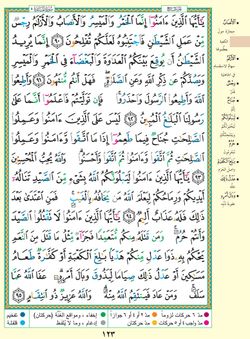 يَٰٓأَيُّهَا ٱلَّذِينَ ءَامَنُوٓاْ إِنَّمَا ٱلْخَمْرُ وَٱلْمَيْسِرُ وَٱلْأَنصَابُ وَٱلْأَزْلَٰمُ رِجْسٌ
مِّنْ عَمَلِ ٱلشَّيْطَٰنِ فَٱجْتَنِبُوهُ لَعَلَّكُمْ تُفْلِحُونَ ٩٠ إِنَّمَا يُرِيدُ
ٱلشَّيْطَٰنُ أَن يُوقِعَ بَيْنَكُمُ ٱلْعَدَٰوَةَ وَٱلْبَغْضَآءَ فِى ٱلْخَمْرِ وَٱلْمَيْسِرِ
وَيَصُدَّكُمْ عَن ذِكْرِ ٱللَّهِ وَعَنِ ٱلصَّلَوٰةِ فَهَلْ أَنتُم مُّنتَهُونَ ٩١ وَأَطِيعُوا۟
ٱللَّهَ وَأَطِيعُوا۟ ٱلرَّسُولَ وَٱحْذَرُوا۟ فَإِن تَوَلَّيْتُمْ فَٱعْلَمُوٓا۟ أَنَّمَا عَلَىٰ
رَسُولِنَا ٱلْبَلَٰغُ ٱلْمُبِينُ ٩٢ لَيْسَ عَلَى ٱلَّذِينَ ءَامَنُوا۟ وَعَمِلُوا۟
ٱلصَّٰلِحَٰتِ جُنَاحٌ فِيمَا طَعِمُوٓا۟ إِذَا مَا ٱتَّقَوا۟ وَّءَامَنُوا۟ وَعَمِلُوا۟
ٱلصَّٰلِحَٰتِ ثُمَّ ٱتَّقَوا۟ وَّءَامَنُوا۟ ثُمَّ ٱتَّقَوا۟ وَّأَحْسَنُوا۟ وَٱللَّهُ يُحِبُّ ٱلْمُحْسِنِينَ
٩٣ يَٰٓأَيُّهَا ٱلَّذِينَ ءَامَنُوا۟ لَيَبْلُوَنَّكُمُ ٱللَّهُ بِشَىْءٍ مِّنَ ٱلصَّيْدِ تَنَالُهُۥٓ
أَيْدِيكُمْ وَرِمَاحُكُمْ لِيَعْلَمَ ٱللَّهُ مَن يَخَافُهُۥ بِٱلْغَيْبِ فَمَنِ ٱعْتَدَىٰ بَعْدَ
ذَٰلِكَ فَلَهُۥ عَذَابٌ أَلِيمٌ ٩٤ يَٰٓأَيُّهَا ٱلَّذِينَ ءَامَنُوا۟ لَا تَقْتُلُوا۟ ٱلصَّيْدَ
وَأَنتُمْ حُرُمٌ وَمَن قَتَلَهُۥ مِنكُم مُّتَعَمِّدًا فَجَزَآءٌ مِّثْلُ مَا قَتَلَ مِنَ ٱلنَّعَمِ
يَحْكُمُ بِهِۦ ذَوَا عَدْلٍ مِّنكُمْ هَدْيًۢا بَٰلِغَ ٱلْكَعْبَةِ أَوْ كَفَّٰرَةٌ طَعَامُ
مَسَٰكِينَ أَوْ عَدْلُ ذَٰلِكَ صِيَامًا لِّيَذُوقَ وَبَالَ أَمْرِهِۦ عَفَا ٱللَّهُ عَمَّا
سَلَفَ وَمَنْ عَادَ فَيَنتَقِمُ ٱللَّهُ مِنْهُ وَٱللَّهُ عَزِيزٌ ذُو ٱنتِقَامٍ ٩٥
١٢٣